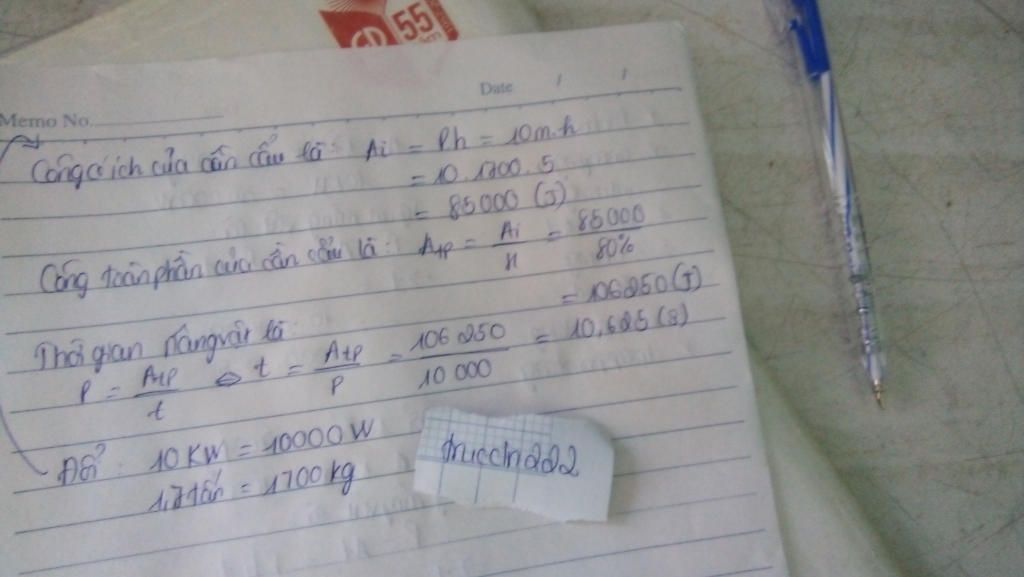 55
Memo No.
Date / /
Công có ích của cần cẩu là: Ai = Ph = 10m.h
= 10.1700.5
= 85000 (J)
Công toàn phần của cần cẩu là: Atp = Ai / H = 85000 / 80%
= 106250 (J)
Thời gian nâng vật là:
P = Atp / t ⇔ t = Atp / P = 106250 / 10 000 = 10,625 (s)
Đổi: 10 KW = 10000 W
1,7 tấn = 1700 kg